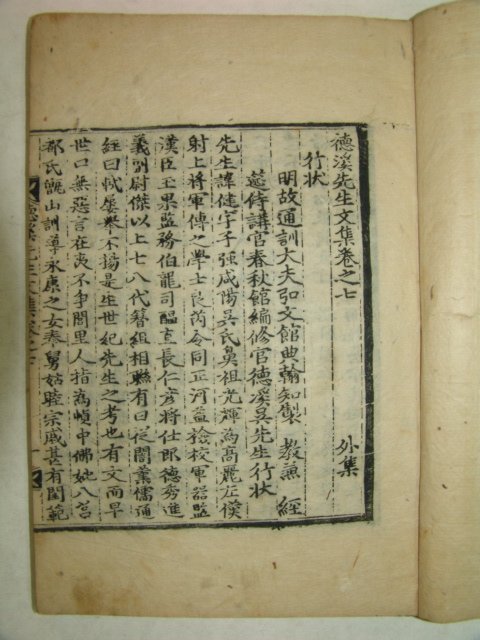 德溪先生文集卷之七 外集
行狀
明故通訓大夫弘文館典翰知製 教兼 經
筵侍講官春秋館編修官德溪吳先生行狀
先生諱健字子强咸陽吳氏鼻祖光輝為高麗左僕
射上將軍傳之學士良芮令同正河益檢校軍器監
漢臣王果監務伯龍司醞直長仁彦將仕郎德秀進
義副尉傑以上七八代簪組相聯有曰從誾業儒通
經曰軾屢擧不揚是生世紀先生之考也有文而早
世口無惡言在喪不爭閭里人指為幀中佛妣八莒
都氏甑山訓導永康之女奉舅姑睦宗戚甚有閫範